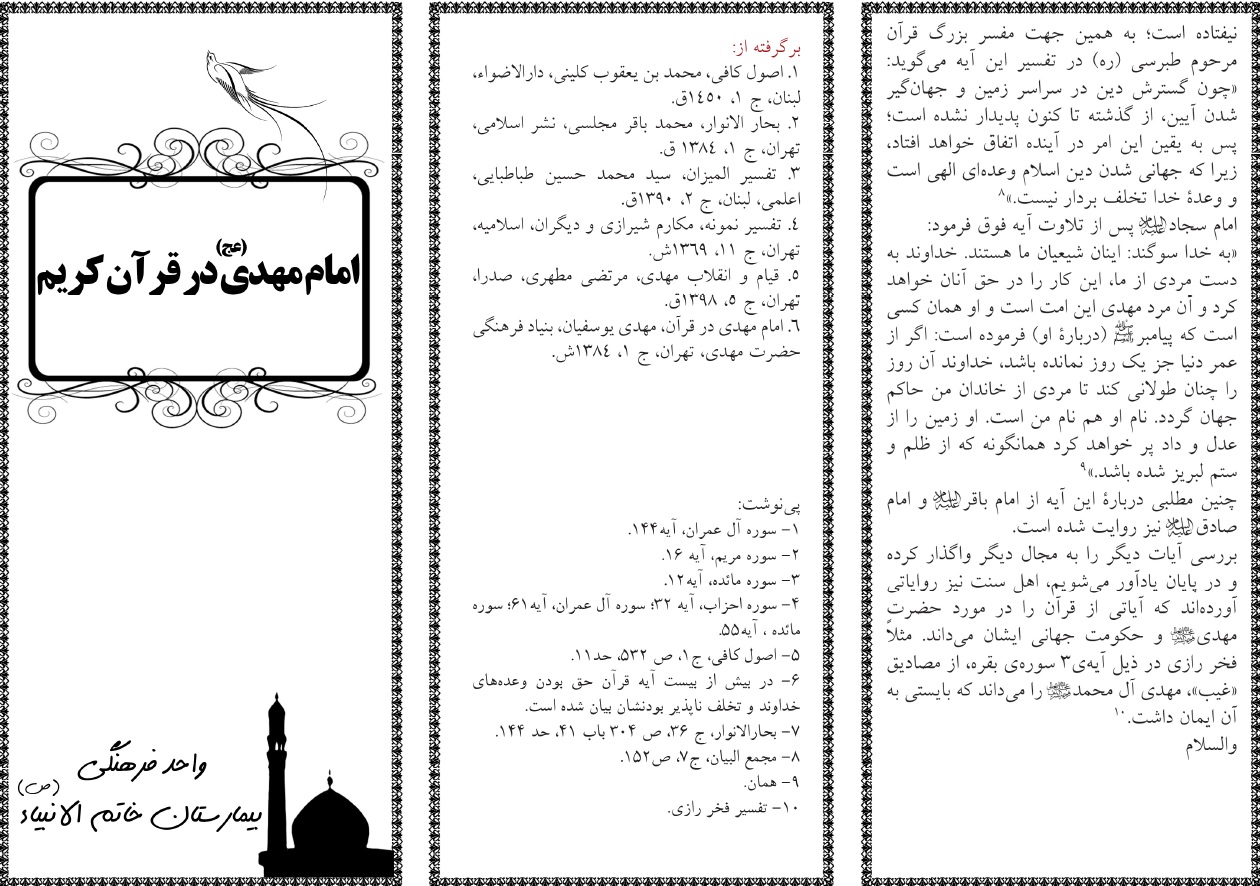 نیفتاده است؛ به همین جهت مفسر بزرگ قرآن
مرحوم طبرسی (ره) در تفسیر این آیه می‌گوید:
«چون گسترش دین در سراسر زمین و جهان‌گیر
شدن آیین، از گذشته تا کنون پدیدار نشده است؛
پس به یقین این امر در آینده اتفاق خواهد افتاد،
زیرا که جهانی شدن دین اسلام وعده‌ای الهی است
و وعدۀ خدا تخلف بردار نیست.»۸
امام سجاد علیه‌السلام پس از تلاوت آیه فوق فرمود:
«به خدا سوگند: اینان شیعیان ما هستند. خداوند به
دست مردی از ما، این کار را در حق آنان خواهد
کرد و آن مرد مهدی این امت است و او همان کسی
است که پیامبر ﷺ (دربارۀ او) فرموده است: اگر از
عمر دنیا جز یک روز نمانده باشد، خداوند آن روز
را چنان طولانی کند تا مردی از خاندان من حاکم
جهان گردد. نام او هم نام من است. او زمین را از
عدل و داد پر خواهد کرد همانگونه که از ظلم و
ستم لبریز شده باشد.»۹
چنین مطلبی دربارۀ این آیه از امام باقر علیه‌السلام و امام
صادق علیه‌السلام نیز روایت شده است.
بررسی آیات دیگر را به مجال دیگر واگذار کرده
و در پایان یادآور می‌شویم، اهل سنت نیز روایاتی
آورده‌اند که آیاتی از قرآن را در مورد حضرت
مهدی و حکومت جهانی ایشان می‌داند. مثلاً
فخر رازی در ذیل آیه‌ی۳ سوره‌ی بقره، از مصادیق
«غیب»، مهدی آل محمد را می‌داند که بایستی به
آن ایمان داشت.۱۰
والسلام
برگرفته از:
۱. اصول کافی، محمد بن یعقوب کلینی، دارالاضواء،
لبنان، ج ۱، ۱٤٥۰ق.
۲. بحار الانوار، محمد باقر مجلسی، نشر اسلامی،
تهران، ج ۱، ۱۳۸٤ ق.
۳. تفسیر المیزان، سید محمد حسین طباطبایی،
اعلمی، لبنان، ج ۲، ۱۳۹۰ق.
٤. تفسیر نمونه، مکارم شیرازی و دیگران، اسلامیه،
تهران، ج ۱۱، ۱۳٦۹ش.
٥. قیام و انقلاب مهدی، مرتضی مطهری، صدرا،
تهران، ج ٥، ۱۳۹۸ق.
٦. امام مهدی در قرآن، مهدی یوسفیان، بنیاد فرهنگی
حضرت مهدی، تهران، ج ۱، ۱۳۸٤ش.
پی‌نوشت:
۱– سوره آل عمران، آیه۱۴۴.
۲– سوره مریم، آیه ۱۶.
۳– سوره مائده، آیه۱۲.
۴– سوره احزاب، آیه ۳۲؛ سوره آل عمران، آیه۶۱؛ سوره
مائده ، آیه۵۵.
۵– اصول کافی، ج۱، ص ۵۳۲، حد۱۱.
۶– در بیش از بیست آیه قرآن حق بودن وعده‌های
خداوند و تخلف ناپذیر بودنشان بیان شده است.
۷– بحارالانوار، ج ۳۶، ص ۳۰۴ باب ۴۱، حد ۱۴۴.
۸– مجمع البیان، ج۷، ص۱۵۲.
۹– همان.
۱۰– تفسیر فخر رازی.
امام مهدی(عج) در قرآن کریم
واحد فرهنگی
بیمارستان خاتم الانبیاء (ص)